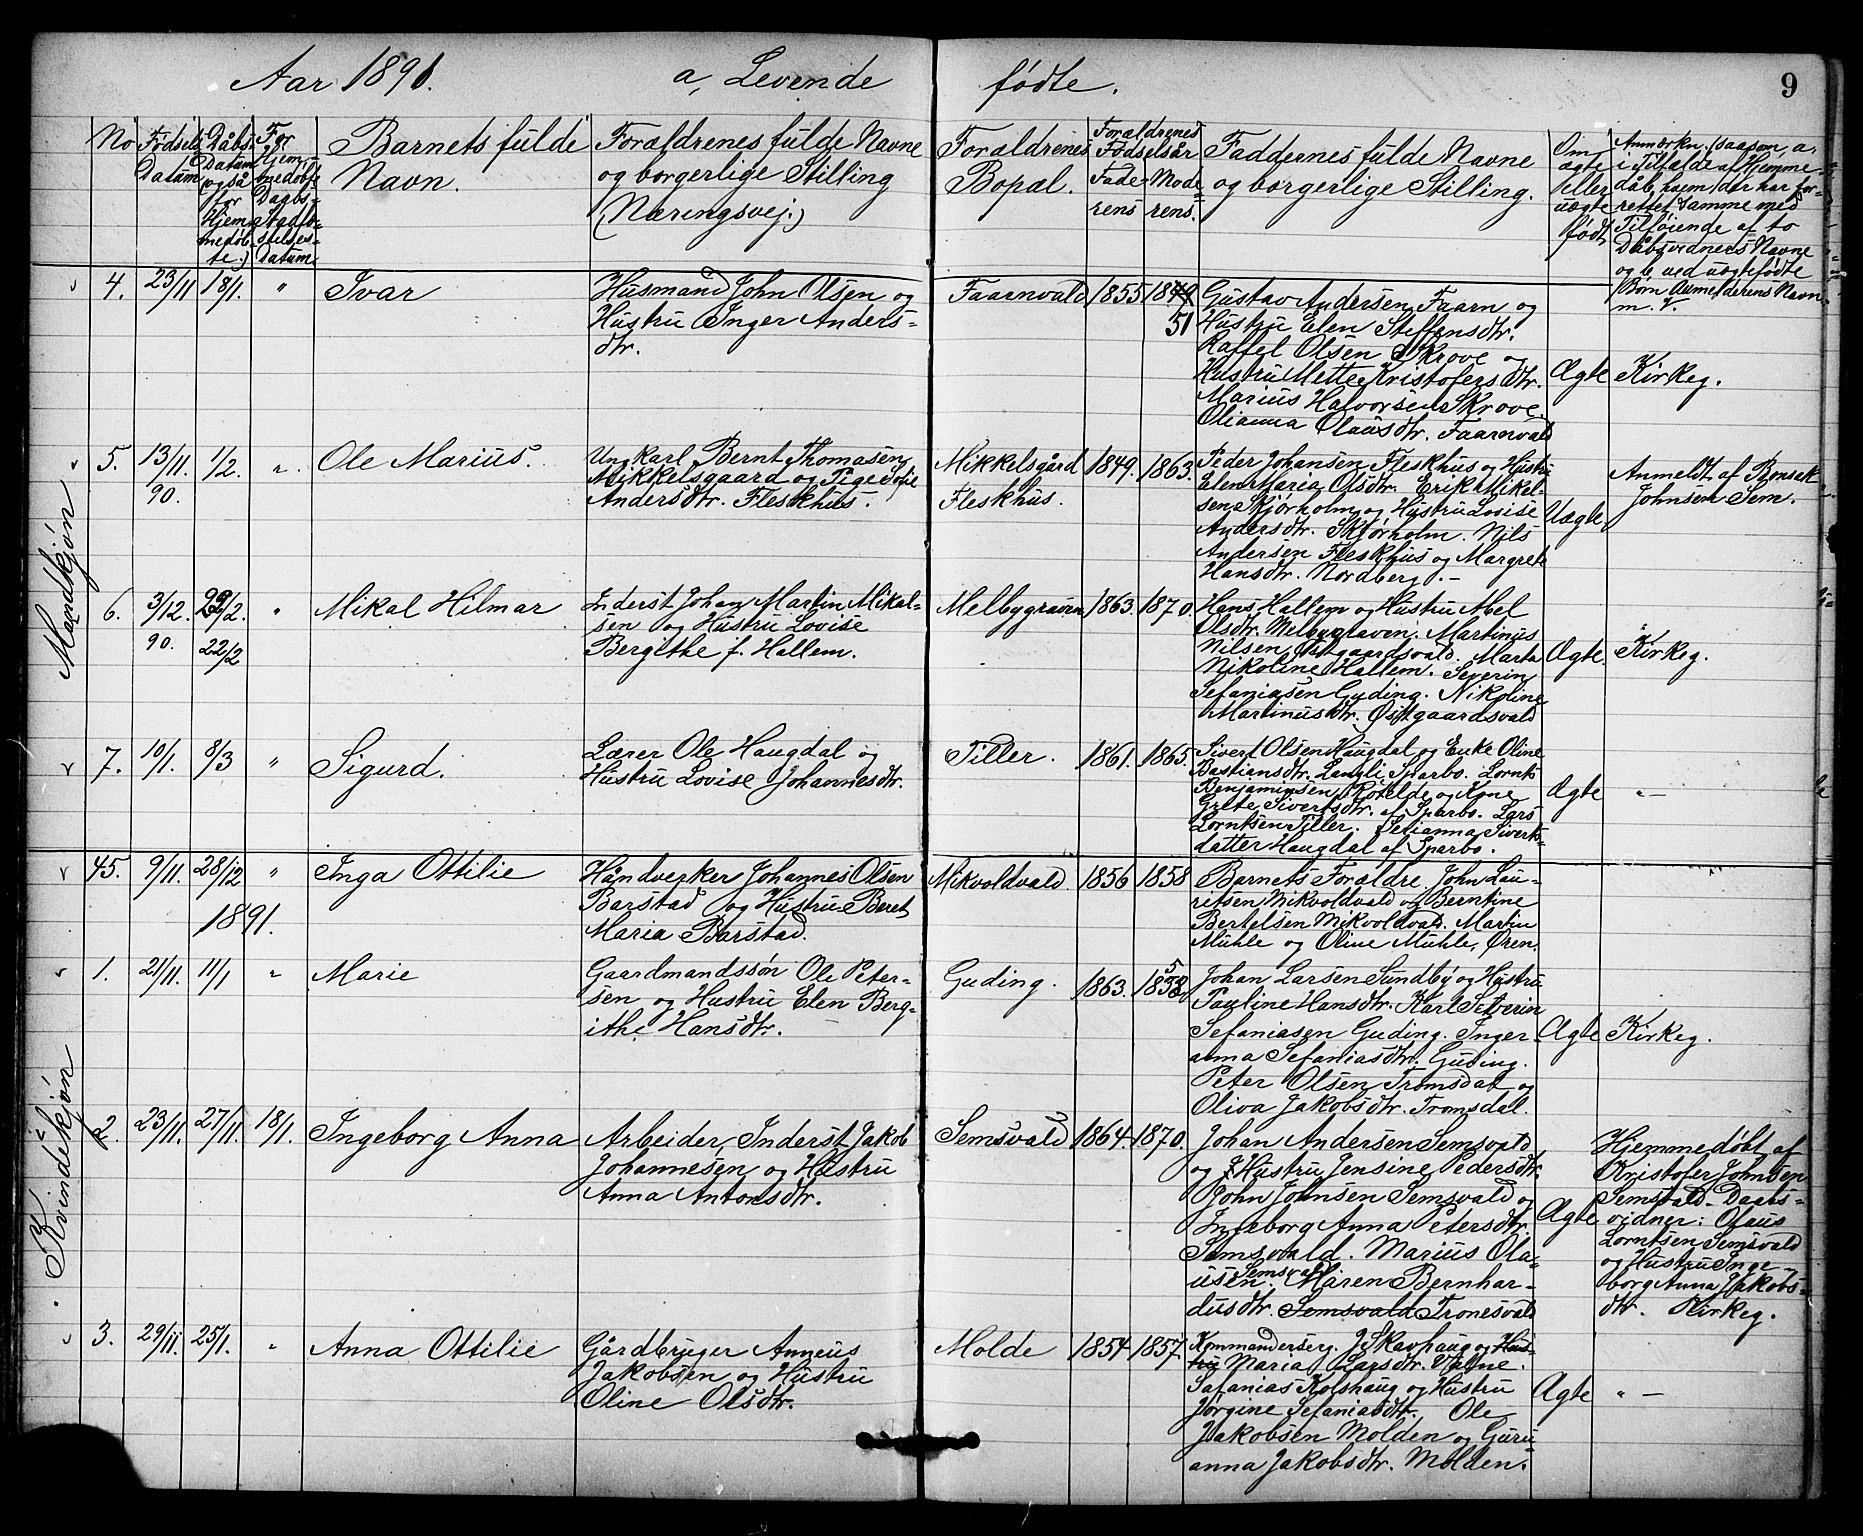 Aar 1891. a, Levende fødte. 9
No
Fødsels Datum
Dåbs Datum (også for Hjemmedøbte.)
For Hjemmedøbte Daabs-stadfæstelses-Datum
Barnets fulde Navn.
Forældrenes fulde Navne
og borgerlige Stilling
(Næringsvej.)
Forældrenes
Bopæl.
Forældrenes
Fødselsår
Faderens Moderens.
Faddernes fulde Navne
og borgerlige Stilling.
Om ægte eller uægte født
Anmærkn. (saasom, a,
i Tilfælde af Hjemme-
dåb, hvem der har for-
rettet samme med
Tilføiende af to
Dåbsvidners Navne
og b, ved uægtefødte
Børn Anmelderens Navn
m. V.
Mandkjøn
4. 23/11 18/1. " Ivar
Husmand John Olsen og
Hustru Inger Anders=
dtr.
Faarnvald 1855 1849
51
Gustav Andersen Faarn og
Hustru Elen Steffensdtr.
Raffel Olsen Skrove og
Hustru Mette Kristofersdtr.
Marius Halvorsen Skrove.
Olianna Olausdtr. Faarnvald
Ægte Kirkeg.
5. 13/11. 90. 1/2. " Ole Marius.
Ungkarl Bernt Thomasen
Mikkelsgaard og Pige Sofie
Andersdtr. Fleskhus.
Mikkelsgård
Fleskhus.
1849. 1863.
Peder Johansen Fleskhus og Hustru
Elen Maria Olsdtr. Erik Mikel-
sen Skjørholm og Hustru Lovise
Andersdtr. Skjørholm. Nils
Andersen Fleskhus og Margrete
Hansdtr. Nordberg.-
Uægte
Anmeldt af Bensek
Johnsen Sem.
6. 3/12. 90. 22/2. 22/2 " Mikal Hilmar
Inderst Johan Martin Mikal-
sen og Hustru Lovise
Bergithe f. Hallem.
Melbygraven 1863. 1870.
Hans Hallem og Hustru Abel
Olsdtr. Melbygraven. Martinus
Nilsen Østgaardsvald. Marta
Nikoline Hallem. Severin
Sefaniasen Guding. Nikoline
Martinusdtr. Østgaardsvald
Ægte Kirkeg.
7. 10/1. 8/3 " Sigurd.
Lærer Ole Haugdal og
Hustru Lovise Johannesdtr.
Tiller. 1861. 1865.
Sivert Olsen Haugdal og Enke Oline
Bastiansdtr. Langli Sparbo. Lornts
Benjaminsen Røtelde og Kone
Grete Sivertsdtr. af Sparbo. Lars
Lorntsen Tiller. Sefianna Siverts-
datter Haugdal af Sparbo.
Ægte "—
Kvindekjøn
45. 9/11. 28/12 " Inga Ottilie
Håndverker Johannes Olsen
Barstad og Hustru Beret
Maria Barstad.
Mikvoldvald 1856 1858
Barnets Forældre. John Lau-
ritsen Mikvoldvald og Berntine
Bertelsen Mikvoldvald. Martin
Mühle og Oline Mühle, Øren.
1891.
1. 21/11. 11/1 " Marie
Gaardmandssøn Ole Peter-
sen og Hustru Elen Berg-
ithe Hansdtr.
Guding. 1863. 1858
Johan Larsen Sundby og Hustru
Pauline Hansdtr. Karl Severin
Sefaniasen Guding. Inger-
anna Sefaniasdtr. Guding.
Peter Olsen Tromsdal og
Oliva Jakobsdtr. Tromsdal.
Ægte Kirkeg.
2. 23/11. 27/11 18/1. Ingeborg Anna
Arbeider, Inderst Jakob
Johannesen og Hustru
Anna Antonsdtr.
Semsvald 1864. 1870.
Johan Andersen Semsvald
og Hustru Jensine Pedersdtr.
John Johnsen Semsvald og
Ingeborg Anna Petersdtr.
Semsvald. Marius Ola-
usen. Semsvald Maren Bernhar-
dusdtr. Semsvald Tronesvald
Ægte
Hjemmedøbt af
Kristofer Johnsen
Semsvald. Daabs-
vidner: Olaus
Lorntsen Semsvald
og Hustru Inge-
borg Anna Jakobs-
dtr. Kirkeg.
3. 29/11. 25/1. " Anna Ottilie
Gårdbruger Anneus
Jakobsen og Hustru
Oline Olsdtr.
Molde 1854 1857.
Kommandersersg. J. Skavhaug og Hus-
tru Maria Larsdtr.
Sefanias Kolshaug og Hustru
Jørgine Sefaniasdtr. Ole
Jakobsen Molden og Guru-
anna Jakobsdtr. Molden.
Ægte "—